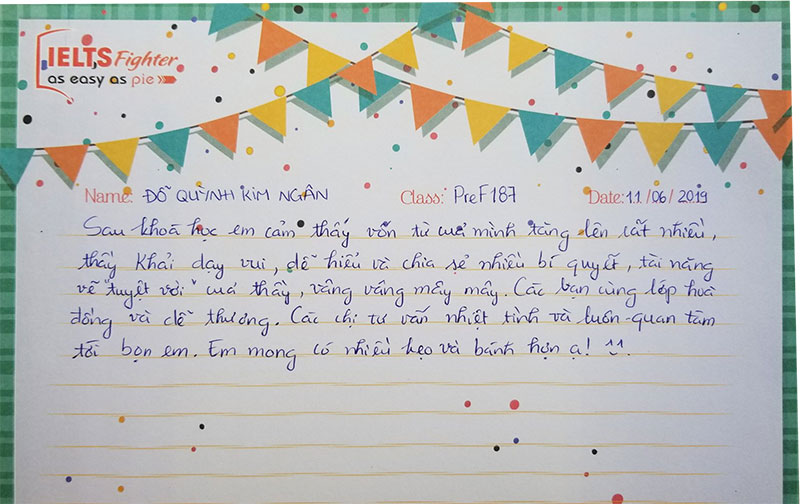 IELTS Fighter
as easy as pie
Name: ĐỖ QUỲNH KIM NGÂN Class: PreF187 Date: 11/06/2019
Sau khoá học em cảm thấy vốn từ của mình tăng lên rất nhiều,
thầy Khải dạy vui, dễ hiểu và chia sẻ nhiều bí quyết, tài năng
vẽ "tuyệt vời" của thầy, vâng vâng mây mây. Các bạn cùng lớp hoà
đồng và dễ thương. Các chị tư vấn nhiệt tình và luôn quan tâm
tới bọn em. Em mong có nhiều kẹo và bánh hơn ạ!